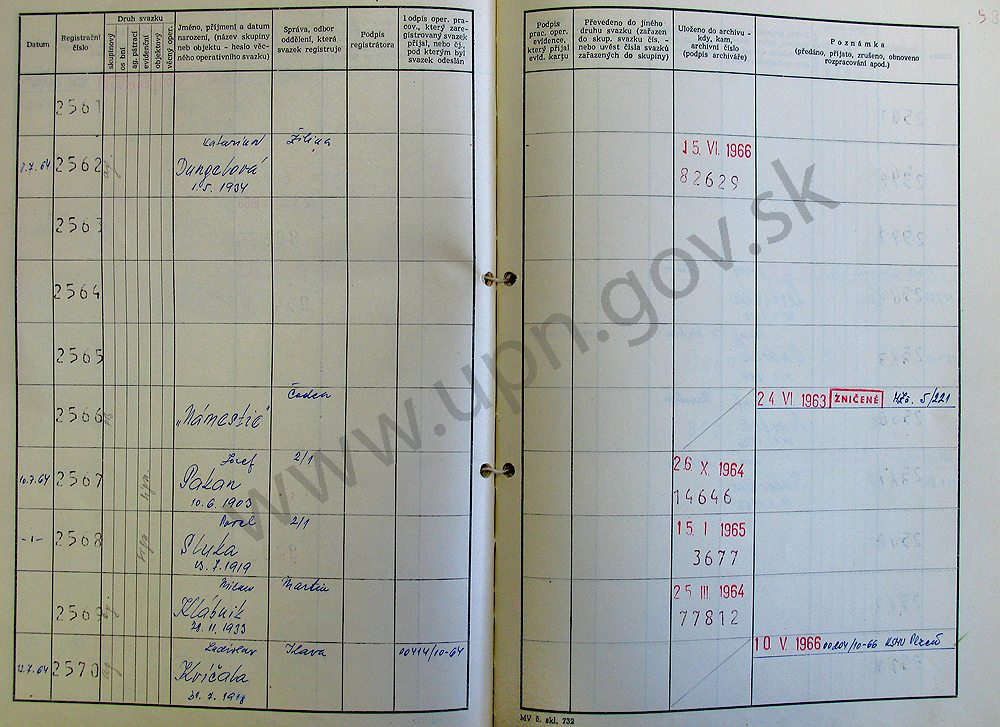 Datum
Registrační číslo
Druh svazku
skupinový
osobní
sg. pátrací
evidenční
objektový
věcný oper.
Jméno, příjmení a datum
narození, (název skupiny
neb objektu - heslo věc-
ného operativního svazku)
Správa, odbor
oddělení, která
svazek registruje
Podpis
registrátora
Podpis oper. pra-
cov., který zare-
gistrovaný svazek
přijal, nebo čj.,
pod kterým byl
svazek odeslán
Podpis
prac. oper.
evidence,
který přijal
evid. kartu
Převedeno do jiného
druhu svazku (zařazen
do skup. svazku čís. -
nebo uvést čísla svazků
zařazených do skupiny)
Uloženo do archivu -
kdy, kam,
archivní číslo
(podpis archiváře)
Poznámka
(předáno, přijato, zrušeno, obnoveno
rozpracování apod.)
2561
Katarína Žilina
2562 Dungelová 15. VI. 1966
1.5. 1934 82629
2563
2564
2565
Čadca
2566 "Námestie" 24 VI 1963 ZNIČENÉ 5/221
Jozef 2/1
10.7.64 2567 Pakan 26 X. 1964
10.6.1903 14646
Pavel 2/1
-1- 2568 Sluka 15. I 1965
7.1919 3677
Milan Martin
2569 Klábnik 25 III 1964
28.11.1933 77812
Ladislav Ilava 00414/10-64 10 V. 1966 00204/10-66 KSMV Plzeň
2570 Kvíčala
31.7.1918
MV č. skl. 732
www.upn.gov.sk